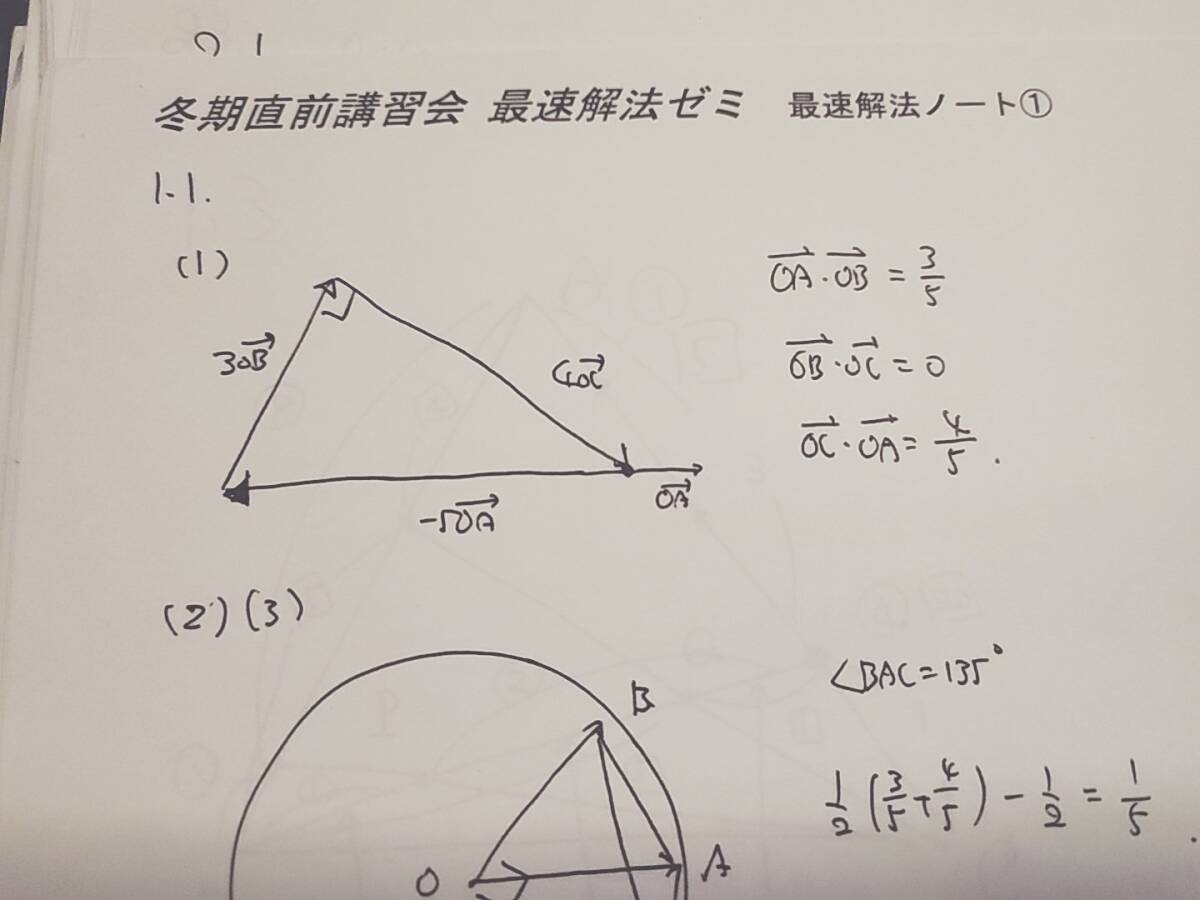 01
冬期直前講習会 最速解法ゼミ 最速解法ノート①
1-1.
(1)
3OB→
4OC→
-5OA→
OA→
OA→・OB→ = 3/5
OB→・OC→ = 0
OC→・OA→ = 4/5.
(2)(3)
B
O
A
∠BAC = 135°
1/2 (3/5 + 4/5) - 1/2 = 1/5.